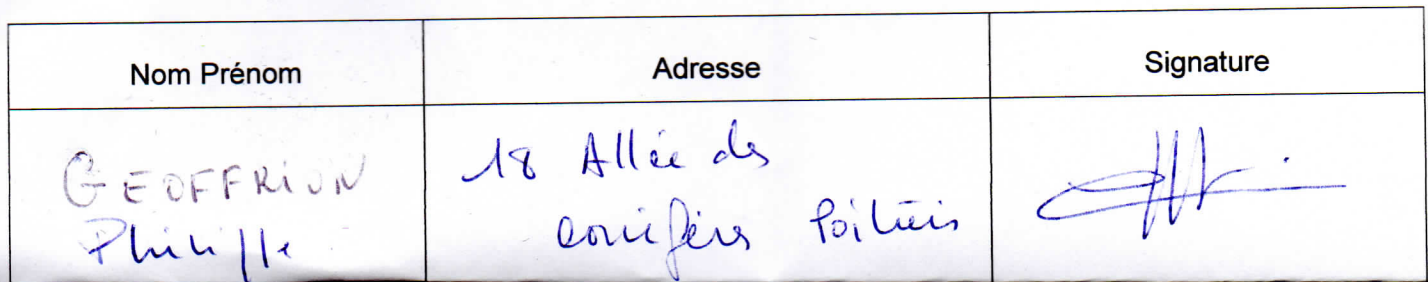 Nom Prénom
Adresse
Signature
GEOFFRION
Philippe
18 Allée des
conifères Poitiers